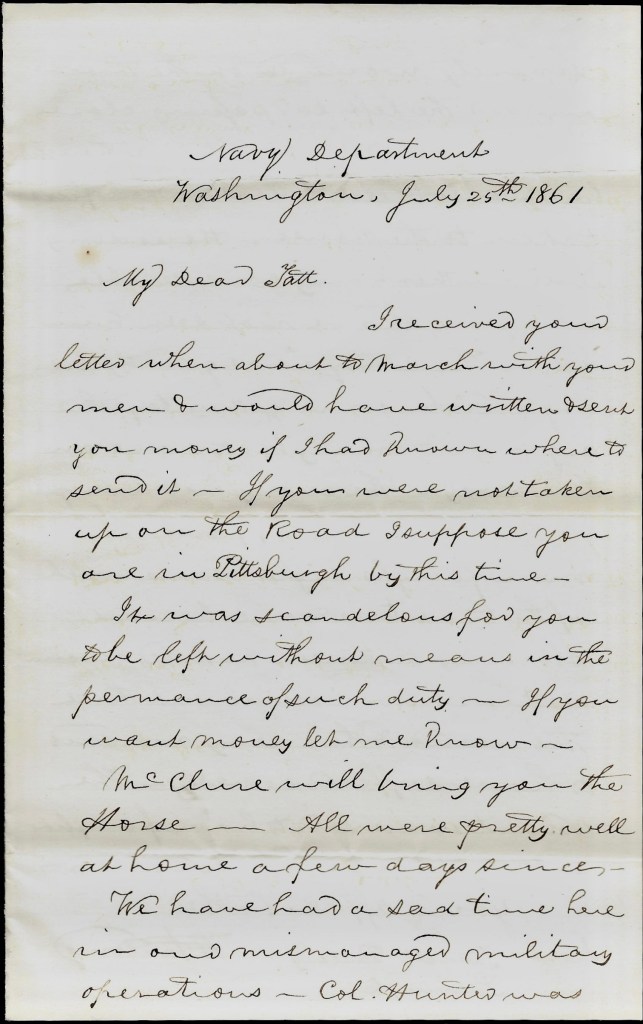 Navy Department
Washington, July 25th 1861
My Dear Tatt.
I received your
letter when about to march with your
men & would have written & sent
you money if I had Known where to
send it — If you were not taken
up on the Road I suppose you
are in Pittsburgh by this time —
It was scandelous for you
to be left without means in the
permance of such duty — If you
want money let me Know —
McClure will bring you the
Horse — All were pretty well
at home a few days since, —
We have had a sad time here
in our mismanaged military
operations — Col. Hunter was